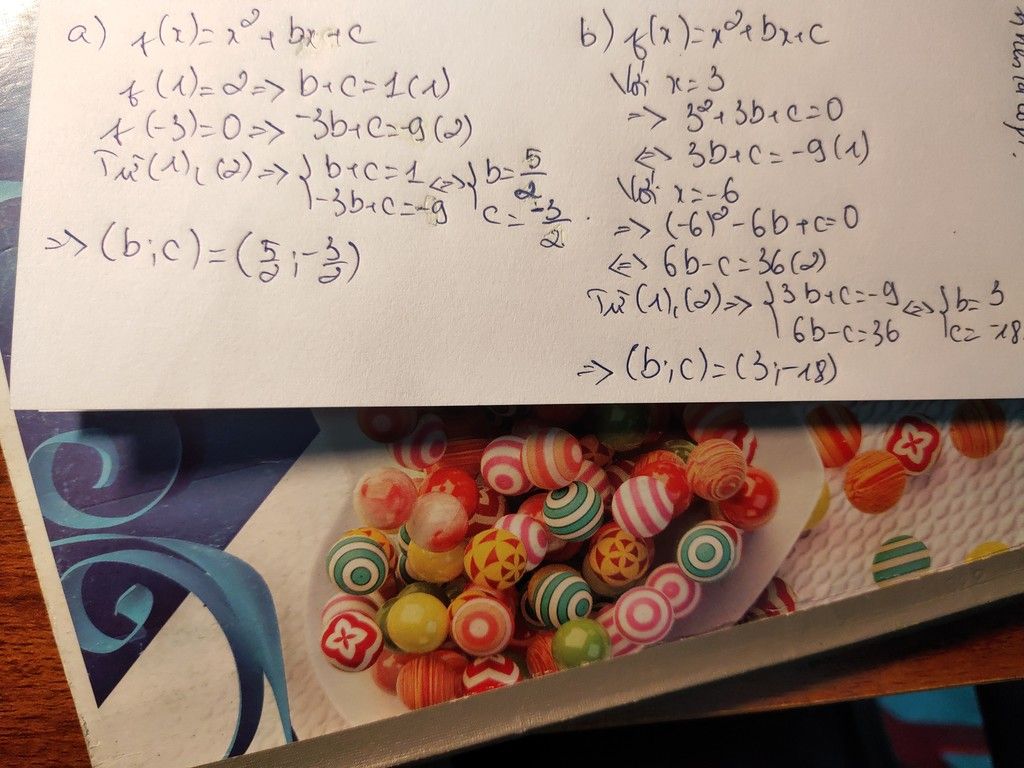 a) f(x)=x²+bx+c
f(1)=2=>b+c=1(1)
f(-3)=0=>-3b+c=-9(2)
Từ(1),(2)=>{b+c=1 <=>{b=5/2
-3b+c=-9 c=-3/2.
=>(b;c)=(5/2;-3/2)
b) f(x)=x²+bx+c
Với x=3
=>3²+3b+c=0
<=>3b+c=-9(1)
Với x=-6
=>(-6)²-6b+c=0
<=>6b-c=36(2)
Từ(1),(2)=>{3b+c=-9<=>{b=3
6b-c=36 c=-18
=>(b;c)=(3;-18)